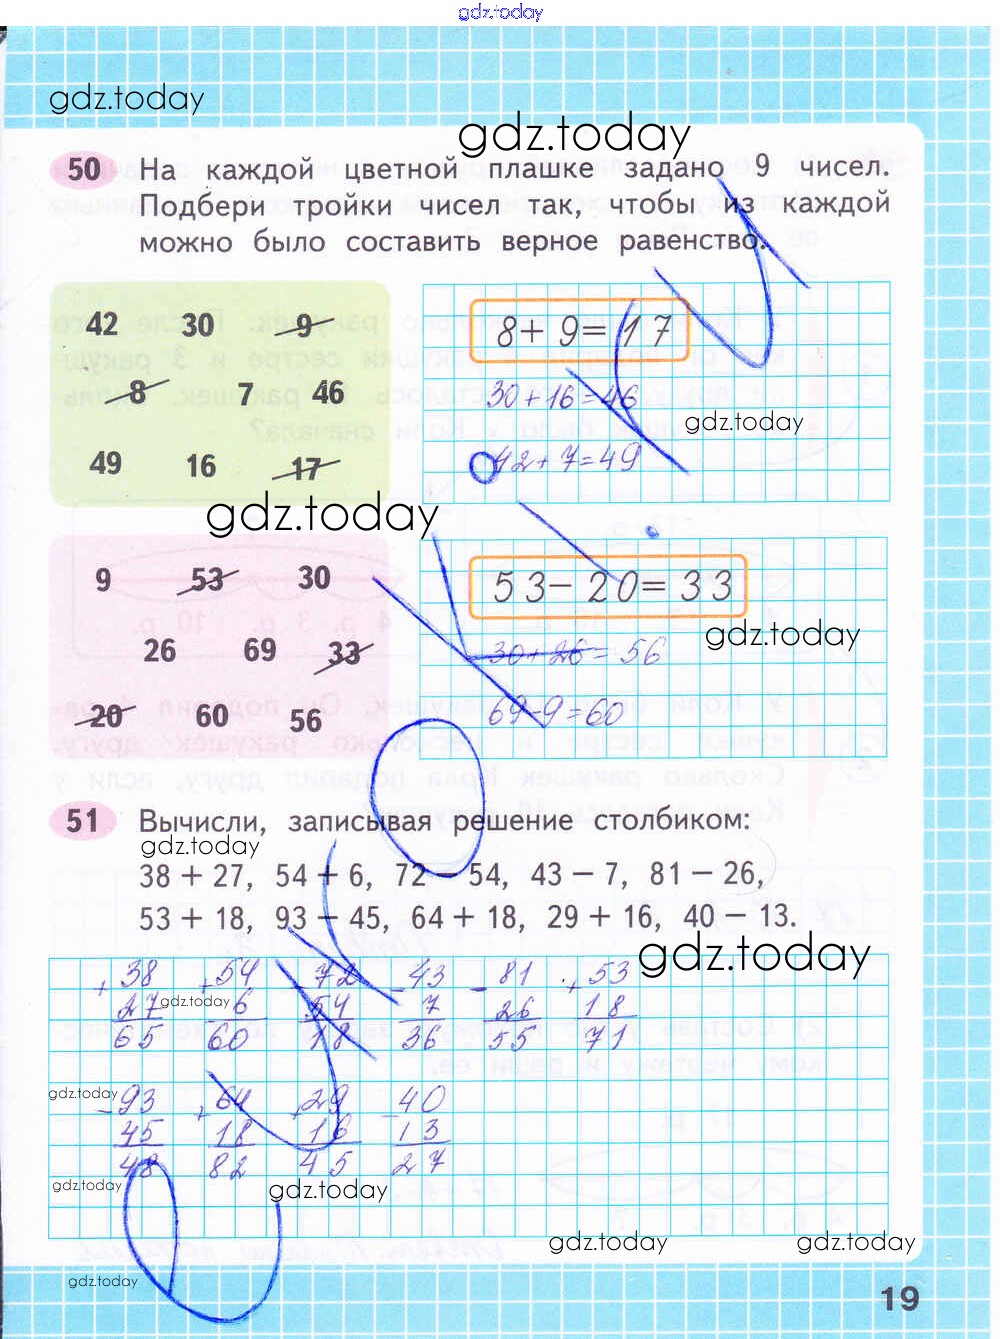 gdz.today
gdz.today
gdz.today
50 На каждой цветной плашке задано 9 чисел.
Подбери тройки чисел так, чтобы из каждой
можно было составить верное равенство.
42 30 9
8 7 46
49 16 17
8+9=17
30+16=46
gdz.today
42+7=49
gdz.today
9 53 30
26 69 33
20 60 56
53-20=33
gdz.today
30+26=56
69-9=60
51 Вычисли, записывая решение столбиком:
gdz.today
38 + 27, 54 + 6, 72 - 54, 43 - 7, 81 - 26,
53 + 18, 93 - 45, 64 + 18, 29 + 16, 40 - 13.
gdz.today
+ 38 + 54 - 72 - 43 - 81 + 53
27 6 54 7 26 18
gdz.today
65 60 18 36 55 71
gdz.today
- 93 + 64 + 29 - 40
45 18 16 13
48 82 45 27
gdz.today
gdz.today
gdz.today
gdz.today
gdz.today
19